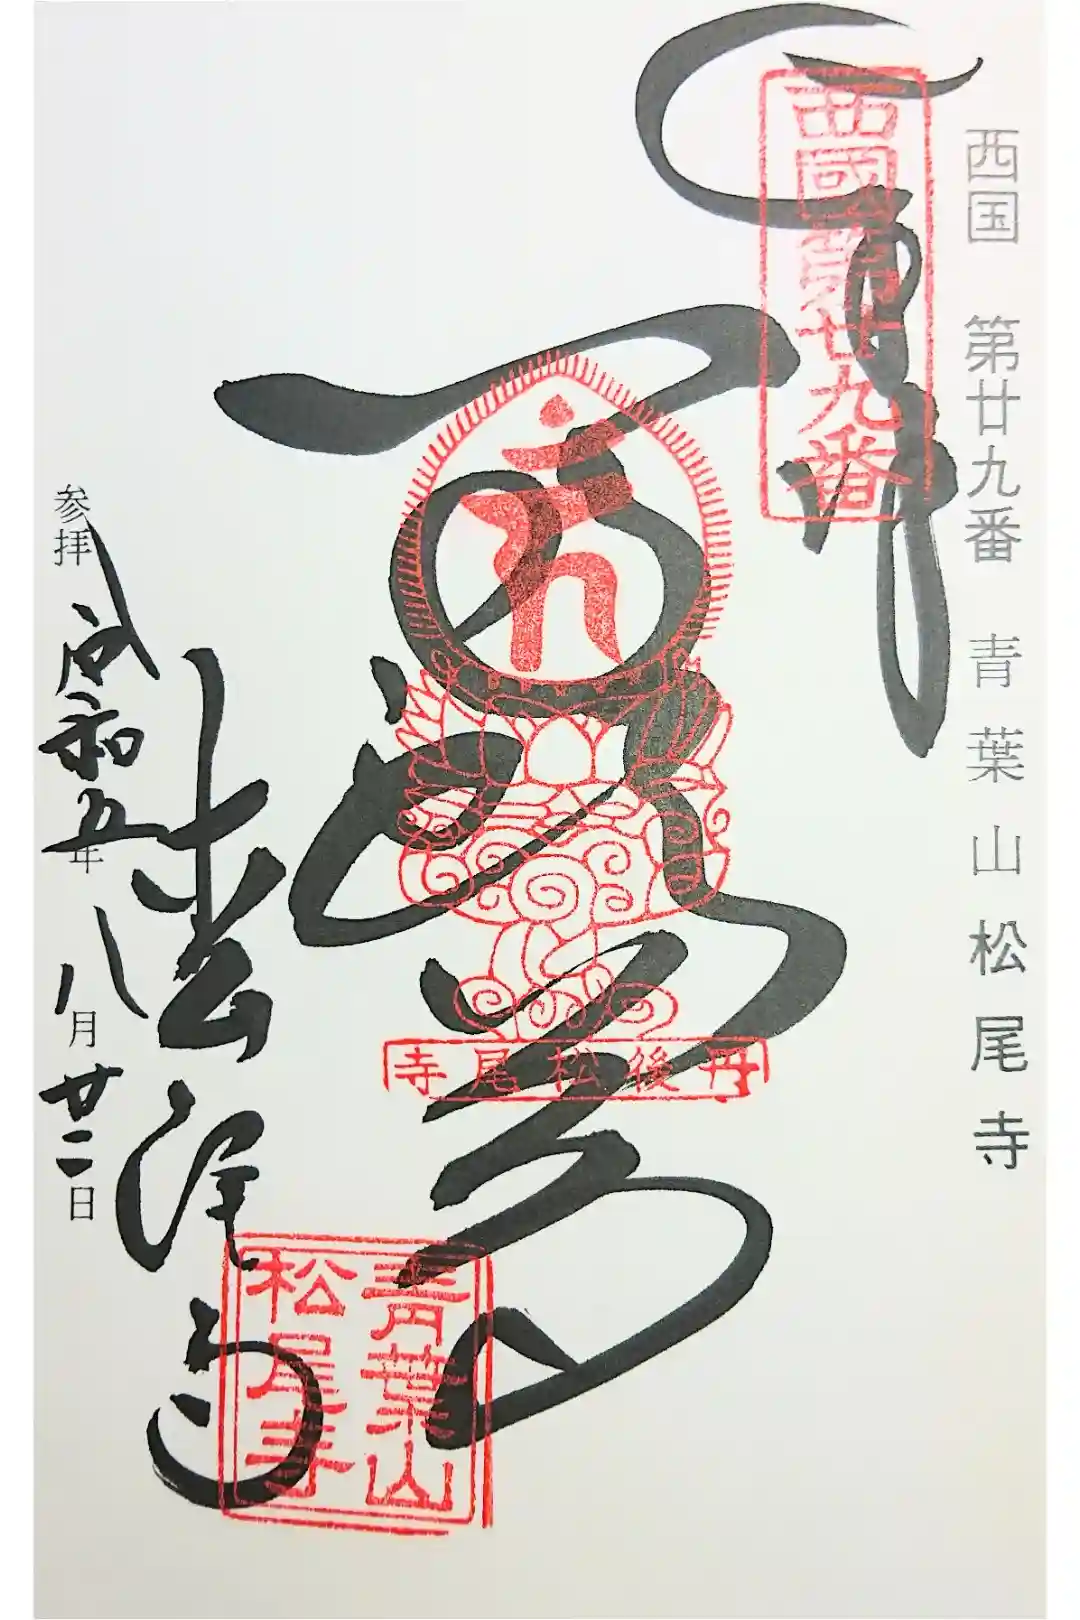 西国 第廿九番 青葉山 松尾寺
西國第廿九番
奉拝
丹後松尾寺
青葉山
松尾寺
松尾寺
参拝 令和五年 八月廿二日